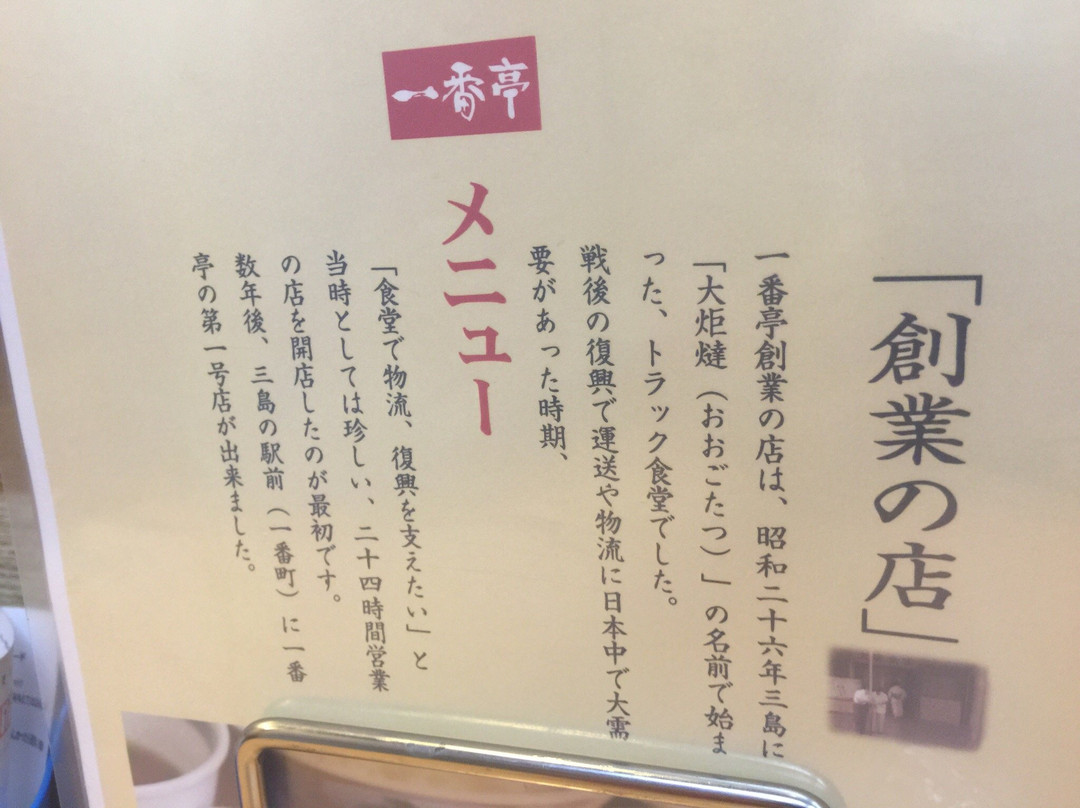 「創業の店」
一番亭創業の店は、昭和二十六年三島に
「大炬燵（おおごたつ）」の名前で始ま
った、トラック食堂でした。
戦後の復興で運送や物流に日本中で大需
要があった時期、
一番亭
メニュー
「食堂で物流、復興を支えたい」と
当時としては珍しい、二十四時間営業
の店を開店したのが最初です。
数年後、三島の駅前（一番町）に一番
亭の第一号店が出来ました。